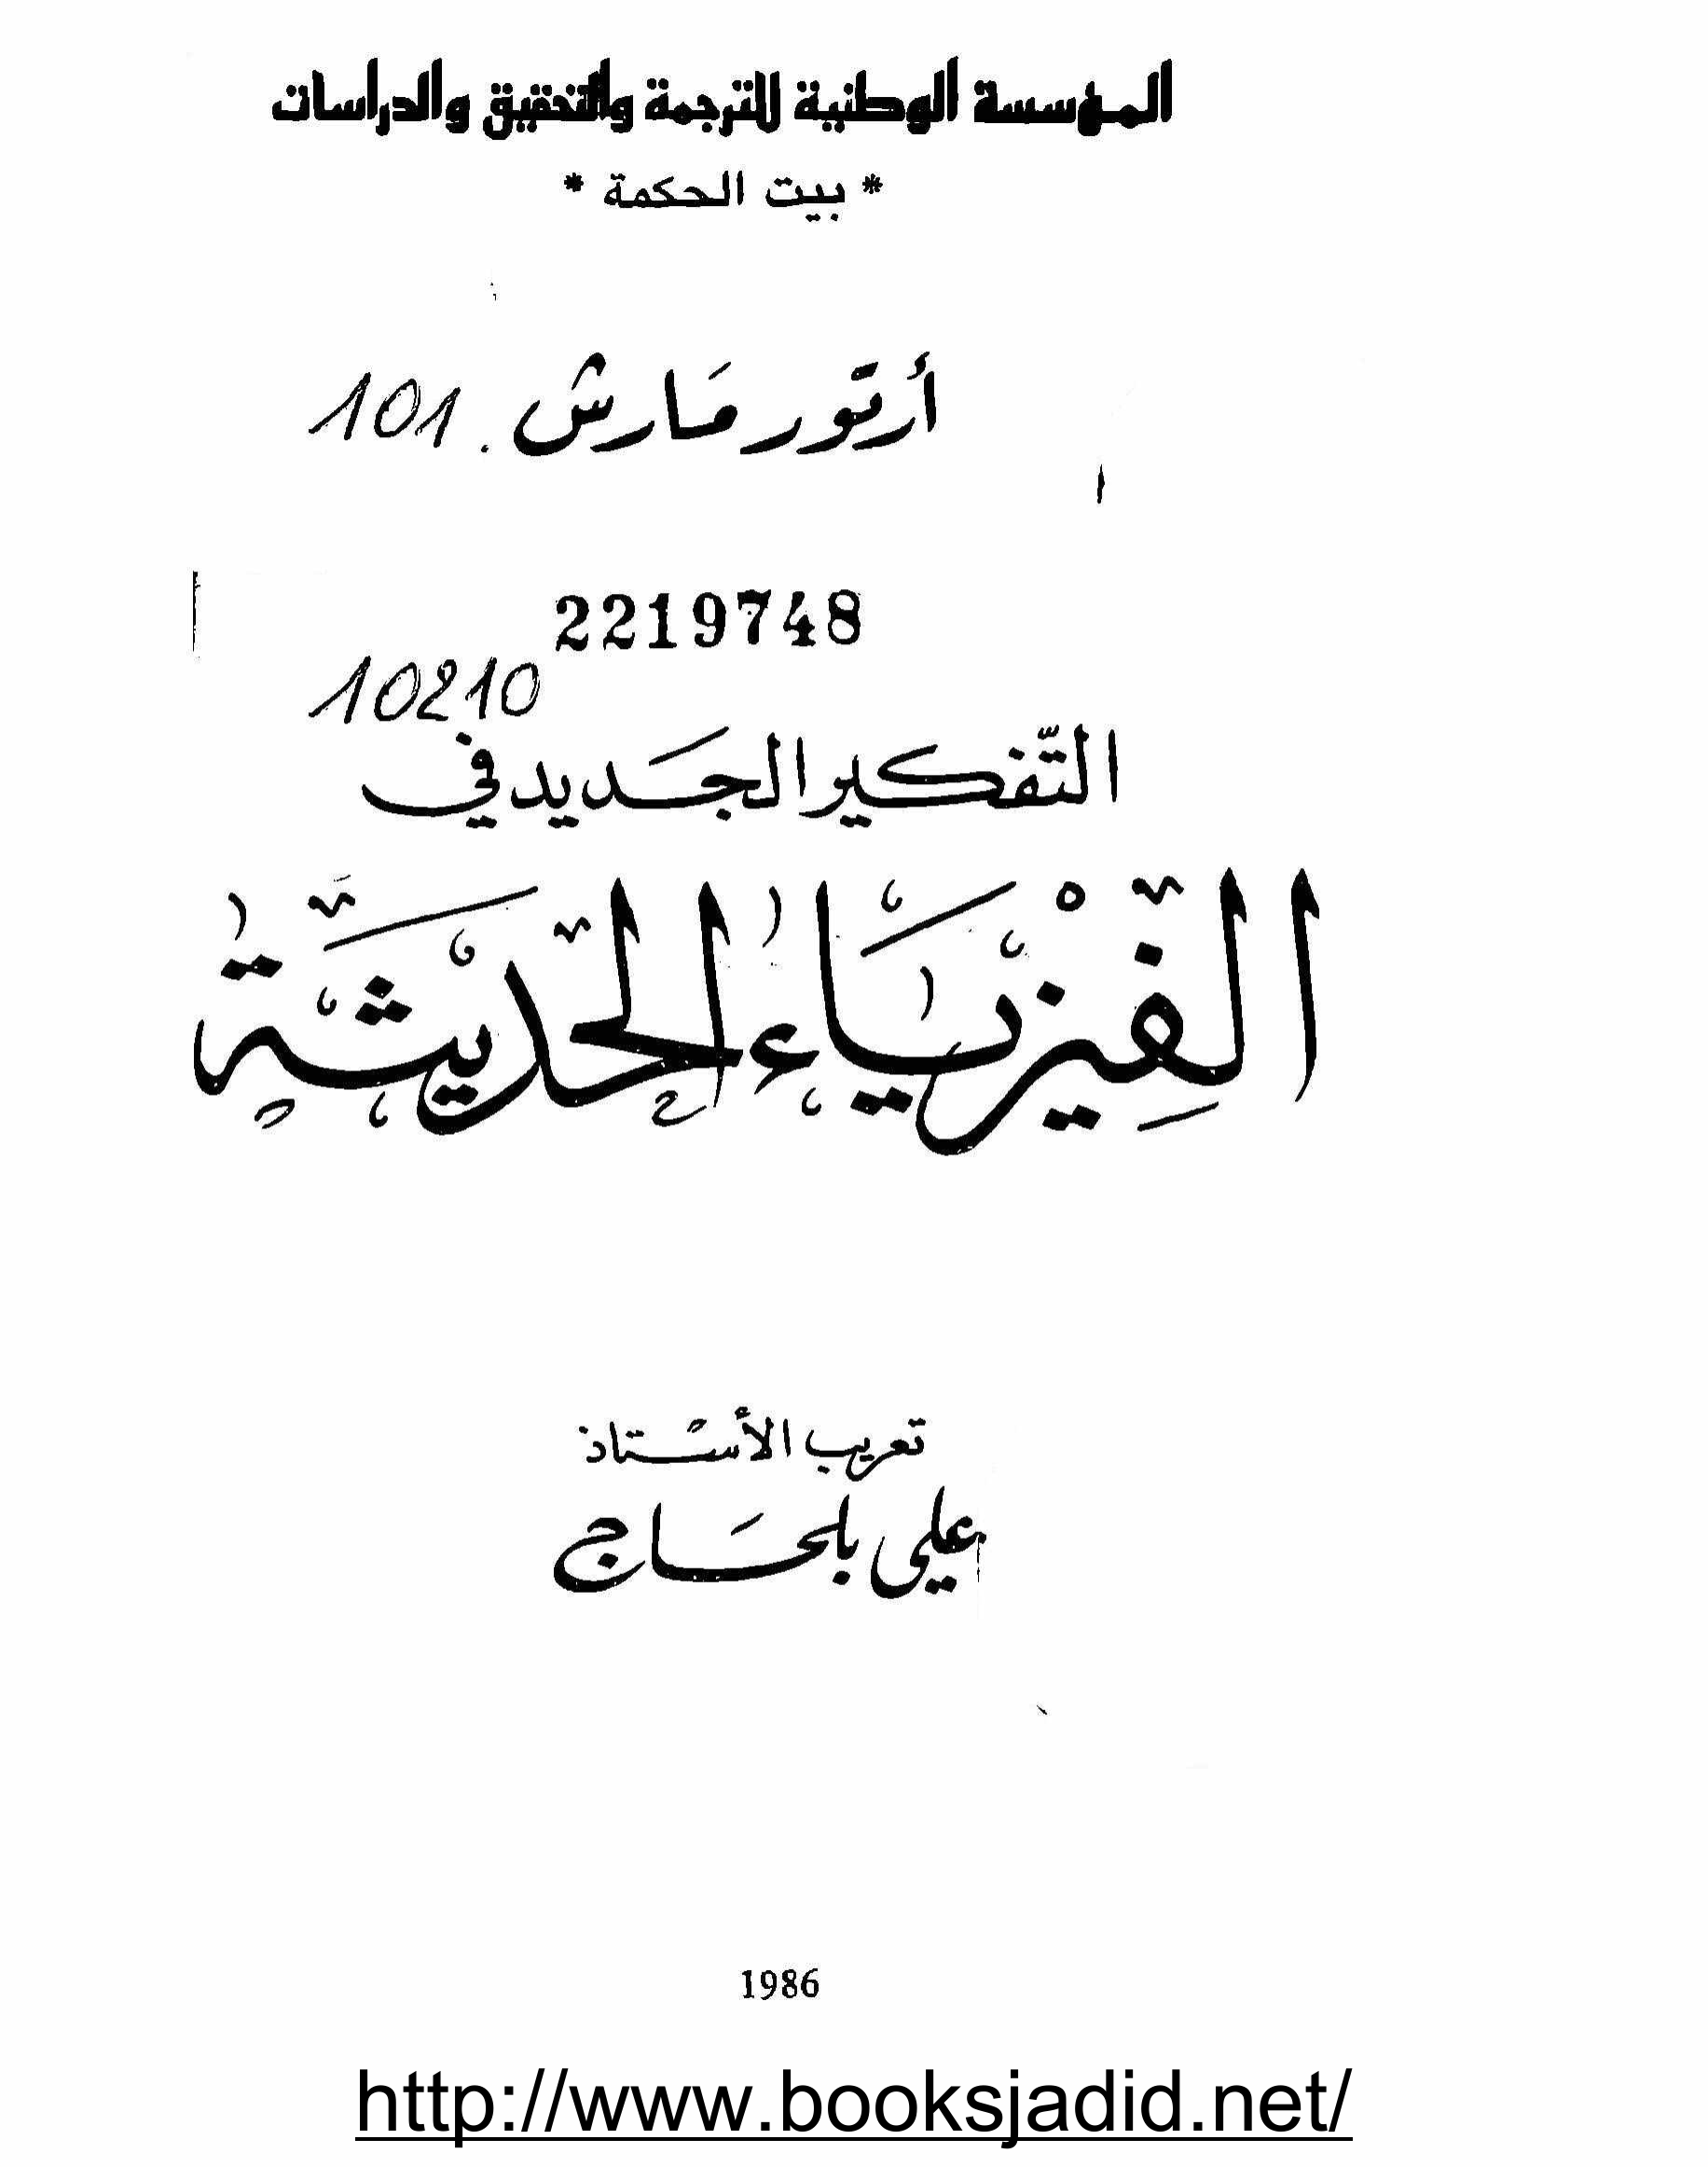 المؤسسة الوطنية للترجمة والتحقيق والدراسات
* بيت الحكمة *
أرتور مَارش . 101
2219748
10210
التّفكير الجَديد في
الفِيزْيَاء الحَديثَة
تعريب الأستاذ
علي بلحَاج
1986
http://www.booksjadid.net/